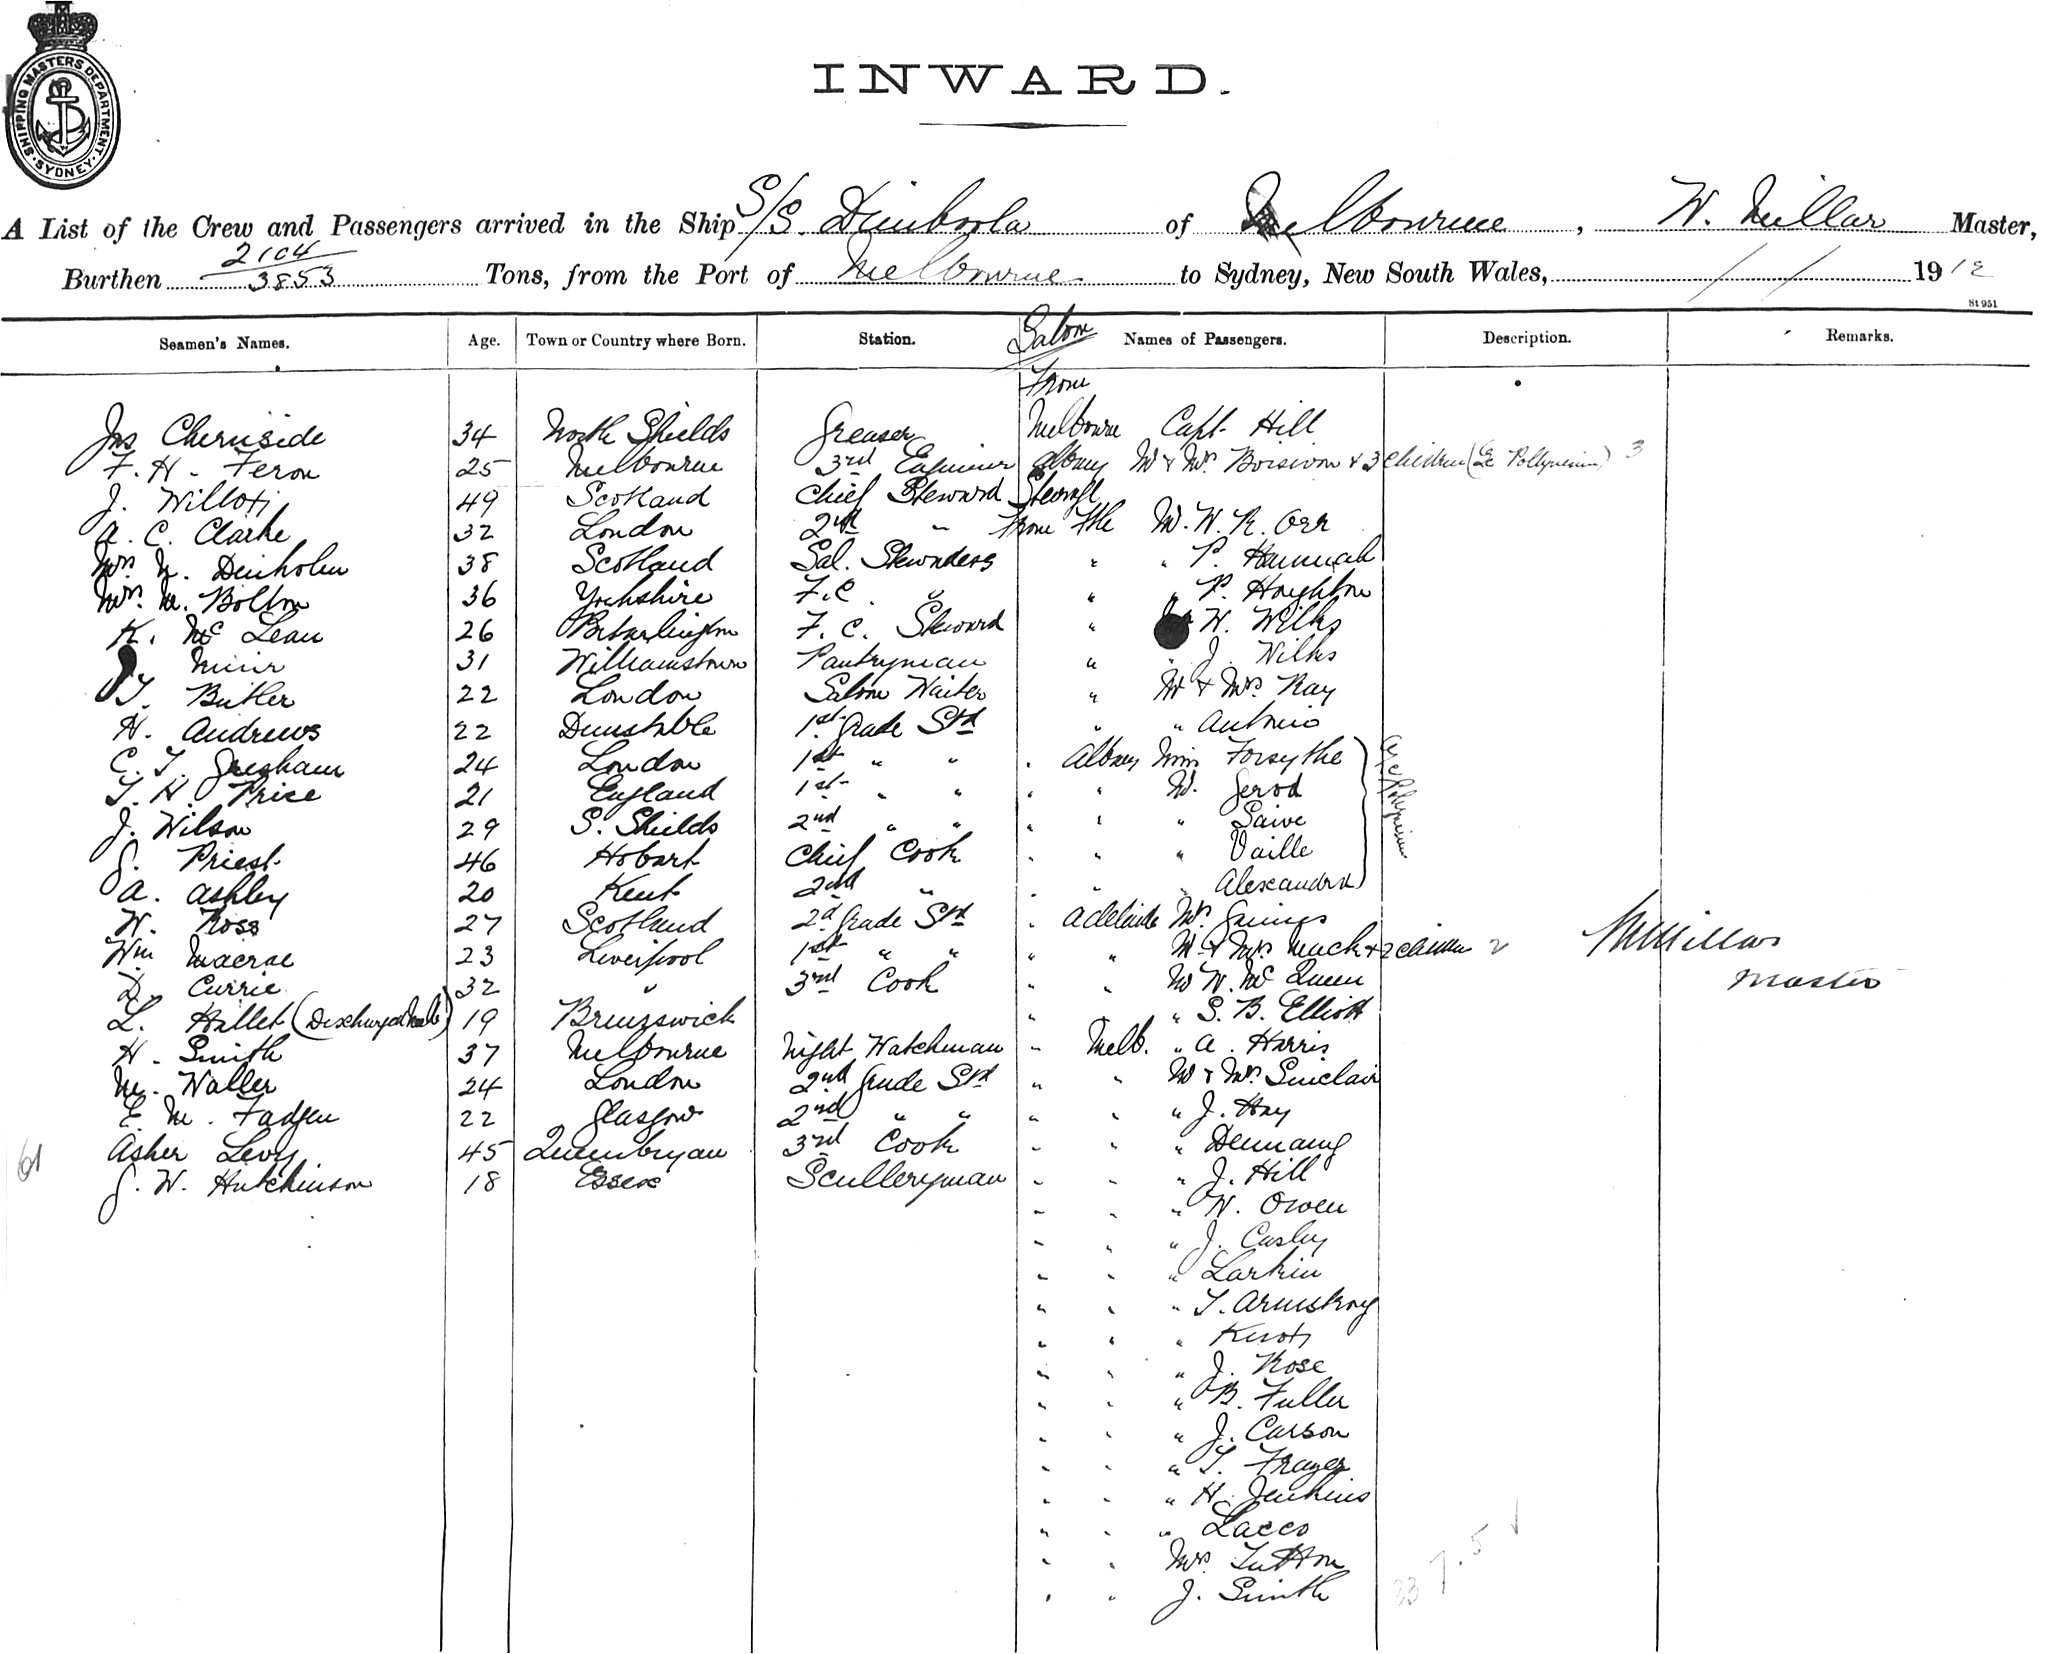 SHIPPING MASTERS DEPARTMENT. SYDNEY
INWARD.
A List of the Crew and Passengers arrived in the Ship S/S. Dimboola of Melbourne, W. Millar Master,
Burthen 2104 / 3853 Tons, from the Port of Melbourne to Sydney, New South Wales, / / 1912
St 951
Seamen's Names. Age. Town or Country where Born. Station. Saloon Names of Passengers. Description. Remarks.
From
Jns Chernside 34 North Shields Greaser Melbourne Capt. Hill
F. H. Feron 25 Melbourne 3rd Engineer Albany Mr & Mrs Boisivon & 3 Children (Ex Pollynesien) 3
J. Willox 49 Scotland Chief Steward Steerage
A. C. Clarke 32 London 2nd " From Ftle Mr. W. R. Orr
Mrs N. Denholm 38 Scotland Sal. Stewardess " " P. Hannah
Mrs. M. Bolton 36 Yorkshire F.C. " " " P. Houghton
K. McLean 26 F. C. Steward " W. Wilks
Muir 31 Williamstown Pantryman " " J. Wilks
T. Butler 22 London Saloon Waiter " Mr & Mrs Ray
H. Andrews 22 Dunstable 1st Grade Std " " Antonio
C. T. Gresham 24 London 1st " " " Albany Miss Forsythe
T. H. Price 21 England 1st " " " " Mr. Gerod
J. Wilson 29 S. Shields 2nd " " " " " Saive
G. Priest 46 Hobart Chief Cook " " " Vaille
A. Ashley 20 Kent 2nd " " " " Alexandra
Ex Polynesien
W. Ross 27 Scotland 2d Grade Std " Adelaide Mrs.
Wm Macrae 23 Liverpool 1st " " " " Mr & Mrs Muck & 2 children 2 W Millar
D. Currie 32 " 3rd Cook " " Mr W. McQueen Master
L. Hallet (Discharged Melb) 19 Brunswick " " " S. B. Elliott
H. Smith 37 Melbourne Night Watchman " Melb. " A. Harris
M. Waller 24 London 2nd Grade Std " " Mr & Mrs Sinclair
E. M. Fadgen 22 Glasgow 2nd " " " " " J. Hay
61 Asher Levy 45 Queenbeyan 3rd Cook " " "
G. W. Hutchinson 18 Essex Sculleryman " " " J. Hill
" " " W. Owen
" " " J.
" " " Larkin
" " " T. Armstrong
" " " Knox
" " " J. Rose
" " " B. Fuller
" " " J. Carson
" " " T. Frazer
" " " H. Jenkins
" " " Lacco
" " Mrs Tutton
" " J. Smith
33 7.5 ✓